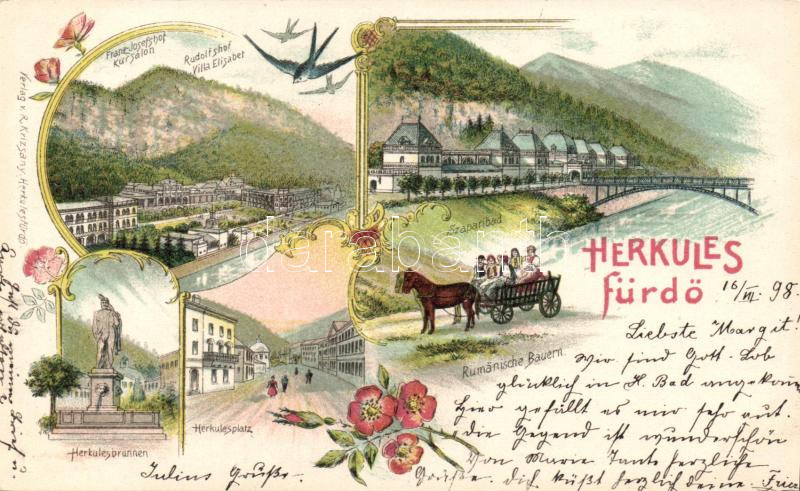 Franz-Josefshof
Kursalon
Rudolfshof
Villa Elisabet
Verlag v. R. Krizsány, Herkulesfürdő
Szaparibad
HERKULES
fürdö
16/VII. 98.
Rumänische Bauern.
Herkulesbrunnen
Herkulesplatz
darabanth
Liebste Margit!
Wir sind Gott Lob
glücklich in H. Bad angekom
Hier gefällt es mir sehr gut.
die Gegend ist wunderschön
Von Marie Tante herzliche
Grüße. dich küßt herzlich deine
Julius Grüße.